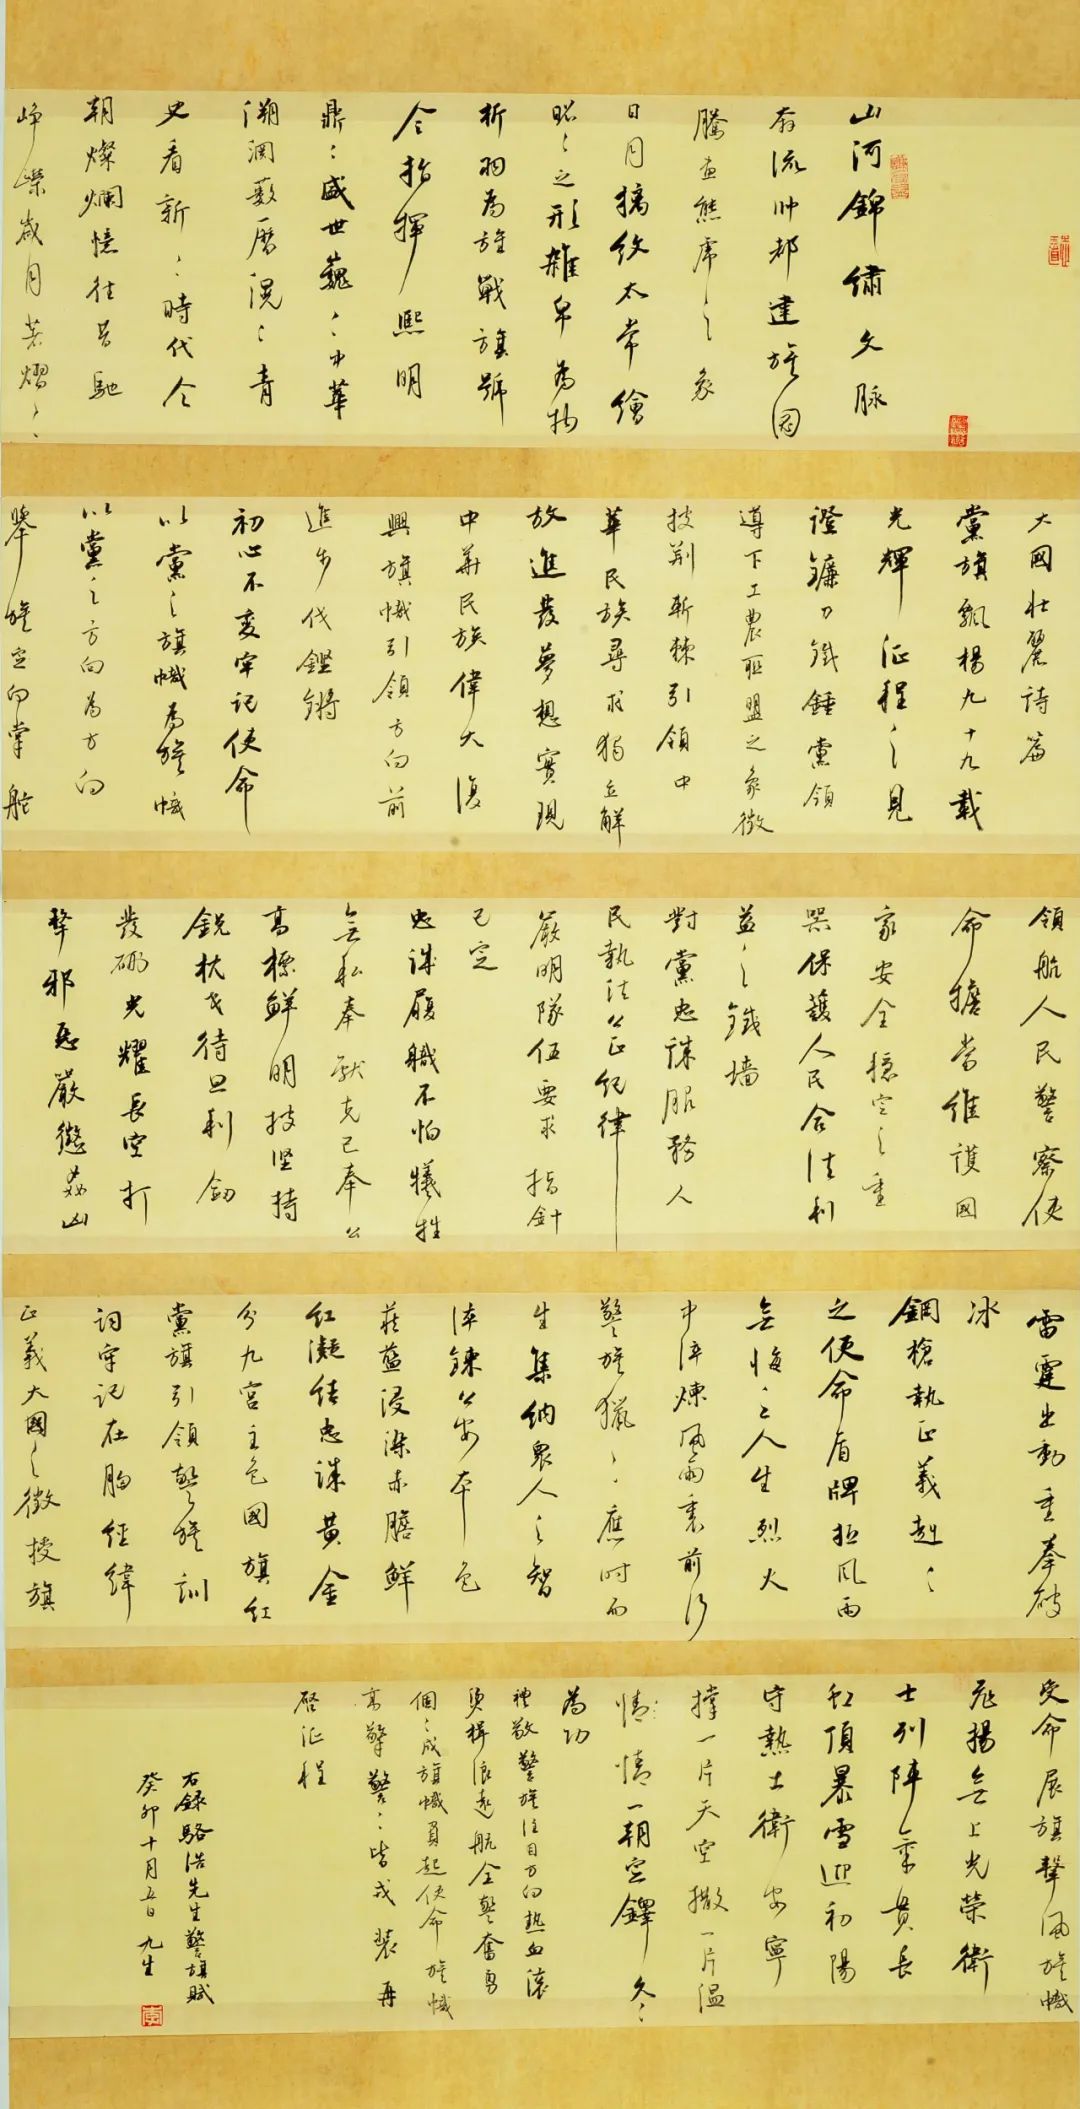 山河錦繡文脉
有流帅都建旌囻
騰画熊虎之象
日月摛纹太常繪
昭昭之形雜帛為物
析羽為旌戰旗號
令指揮熙明
鼎鼎盛世巍巍中華
溯洄薮曆滉滉青
史看新新時代今
朝燦爛憶往昔馳
崢嶸歲月若熠熠
大國壯麗詩篇
黨旗飄楊九十九載
光輝征程之見
證鐮刀鐵錘黨領
導下工農聯盟之象徵
披荆斬棘引領中
華民族尋求獨立解
放進發夢想實現
中華民族偉大復
興旗幟引領方向前
進步伐鏗鏘
初心不变牢記使命
以黨之旗幟為旌幟
以黨之方向為方向
擎旌定向掌舵
領航人民警察使
命擔當維護國
家安全穩定之重
器保護人民合法利
益之鐵墙
對黨忠誠服務人
民執法公正紀律
嚴明隊伍要求指針
已定
忠誠履職不怕犧牲
無私奉獻克己奉公
高標鮮明技坚持
銳枕戈待旦利劍
發硎光耀長空打
擊邪惡嚴懲姦凶
雷霆出動重拳破
冰
鋼槍執正義赳赳
之使命盾牌拒風雨
無悔之人生烈火
中淬煉風雨裏前行
警旌獵獵應时而
生集納衆人之智
淬鍊公安本色
莊藍浸染赤膽鮮
红凝结忠誠黄金
分九宫主色國旗红
黨旗引領警旌訓
詞牢記在胸經緯
正義大國之徽授旗
受命展旗擎風旌幟
飛揚無上光榮衛
士列陣氣貫長
虹頂暴雪迎初陽
守熱土衛安寧
撑一片天空撒一片温
情情一朝定鐸久久
為功
禮敬警旌注目方向热血滚
燙楫浪遠航全警奮勇
個個成旗幟肩起使命旌幟
高擎警警皆戎裝再
啓征程
右錄駱浩先生警旗賦
癸卯十月五日九生